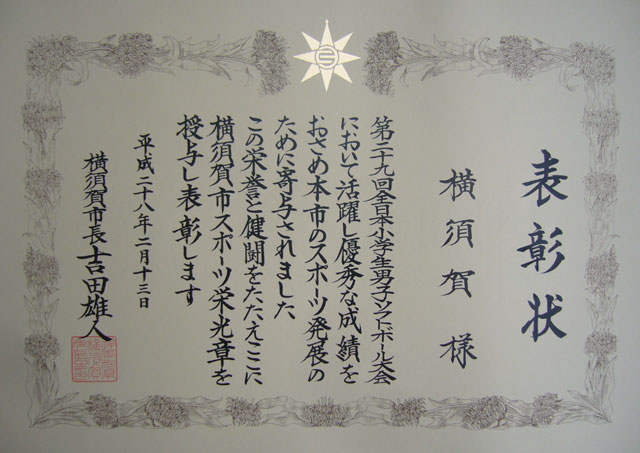 表彰状
横須賀 様
第二十九回全日本小学生男子ソフトボール大会
において活躍し優秀な成績を
おさめ本市のスポーツ発展の
ために寄与されました
この栄誉と健闘をたたえここに
横須賀市スポーツ栄光章を
授与し表彰します
平成二十八年二月十三日
横須賀市長 吉田雄人